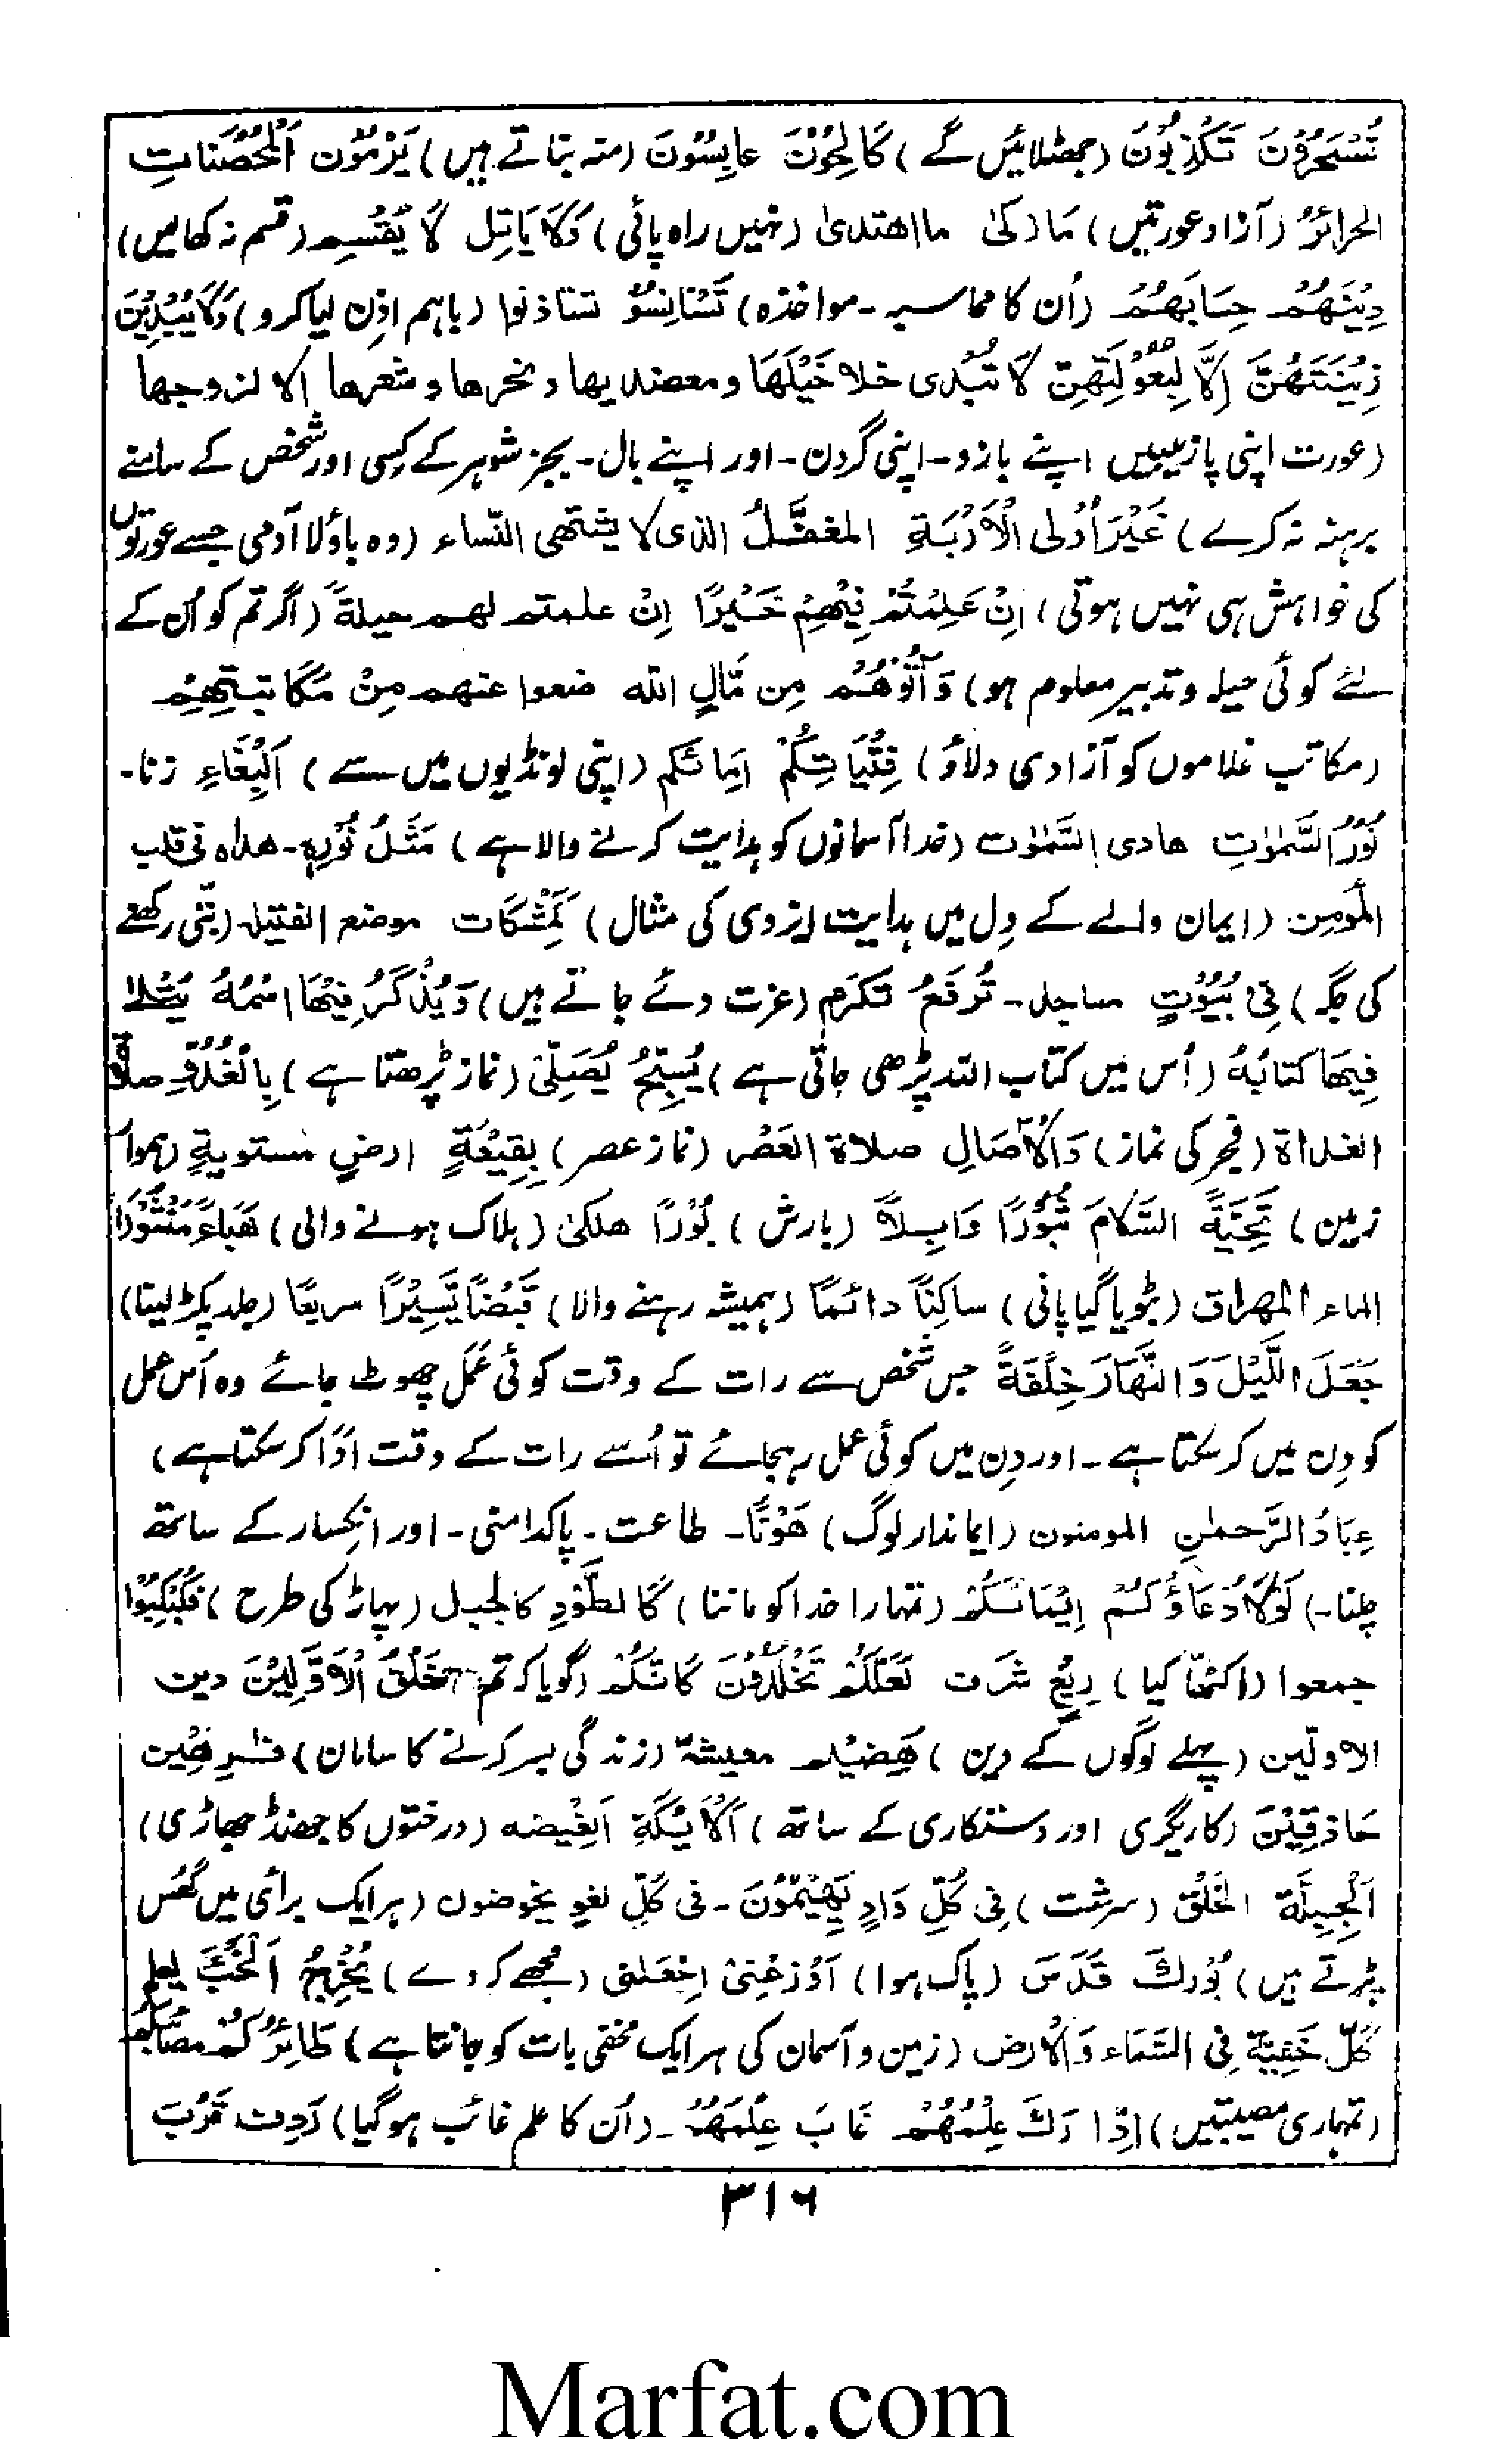 تُسْحَرُوْنَ تَكَذِّبُوْنَ (جھٹلائیں گے) كَالِحُوْنَ عابِسُوْنَ (منہ بتاتے ہیں) يَرْمُوْن اَلْمُحْصَنَاتِ
الحرائرُ (آزاد عورتیں) مَا زَكیٰ مااهتدیٰ (نہیں راہ پائی) وَلَا يَاتَلِ لَا يُقْسِم (قسم نہ کھالیں)
دِيْنَهُمْ حِسَابَهُمْ (اُن کا محاسبہ۔ مواخذہ) تَسْتَانِسُوْ تستاذنوا (باہم اذن لیا کرو) وَلَا يُبْدِيْنَ
زِيْنَتَهُنَّ اِلَّا لِبُعُوْلَتِهِنَّ لَا تُبْدی خلاخَيْلَهَا ومعضدیها و نحرها و شعرها الا لزوجها
(عورت اپنی پازیبیں اپنے بازو۔ اپنی گردن۔ اور اپنے بال۔ بجز شوہر کے کسی اور شخص کے سامنے
برہنہ نہ کرے) غَيْرَ اُولِی الْاَرْبَةِ المغفَّلُ الذی لا یشتهی النّساء (وہ باؤلا آدمی جسے عورتوں
کی خواہش ہی نہیں ہوتی) اِنْ عَلِمْتُمْ فِيْهِمْ خَيْرًا اِنْ علمتم لهم حیلةً (اگر تم کو اُن کے
لئے کوئی حیلہ و تدبیر معلوم ہو) وَآتُوْهُمْ مِن مَّالِ الله ضعوا عنهم مِنْ مَكَاتبتِهِمْ
(مکاتب غلاموں کو آزادی دلاؤ) فِتْيَاتِكُمْ اِمائكم (اپنی لونڈیوں میں سے) اَلْبِغَاءِ زنا۔
نُوْرُ السَّمٰوٰتِ هادی السَّمٰوٰت (خدا آسمانوں کو ہدایت کرنے والا ہے) مَثَلُ نُوْرِهٖ۔ هداه فی قلب
المُومِن (ایمان والے کے دِل میں ہدایت ایزدی کی مثال) كَمِشْكَات موضع الفتیلہ۔ (بتّی رکھنے
کی جگہ) فِیْ بُيُوْتٍ مساجد۔ تُرْفَعُ تكرَم (عزت دئے جاتے ہیں) وَيُذْكَرُ فِيْهَا اسْمُهُ يُتْلا
فِيهَا كتابُهُ (اُس میں کتاب اللہ پڑھی جاتی ہے) يُسَبِّحُ يُصَلِّیْ (نماز پڑھتا ہے) بِالْغُدُوِّ صلٰوة
الغداة (فجر کی نماز) وَالْاٰصَالِ صلاة العَصْر (نماز عصر) بِقِيْعَةٍ ارضٍ مستویةٍ (ہموار
زمین) تَحِيَّةً السَّلامَ ثُبُوْرًا وَابِلاً (بارش) بُوْرًا هلکیٰ (ہلاک ہونے والی) هَبَاءً مَّنْثُوْرًا
الماء المهراق (بٹویا گیا پانی) ساكِنًا دائمًا (ہمیشہ رہنے والا) قَبْضًا يَّسِيْرًا سریعًا (جلد پکڑ لینا)
جَعَلَ اللَّيْلَ وَالنَّهَارَ خِلْفَةً جس شخص سے رات کے وقت کوئی عَمَل چھوٹ جائے وہ اُس عمل
کو دِن میں کر سکتا ہے۔ اور دِن میں کوئی عمل رہجائے تو اُسے رات کے وقت ادًا کر سکتا ہے)
عِبَادُ الرَّحمٰنِ المومنون (ایماندار لوگ) هَوْنًا۔ طاعت۔ پاکدامنی۔ اور انکسار کے ساتھ
چلنا۔) لَوْلَا دُعَاؤُكُمْ اِيْمَانُكُمْ (تمہارا خدا کو ماننا) كَالطَّوْدِ کالجبل (پہاڑ کی طرح) فَكُبْكِبُوْا
جمعوا (اکٹھّا کیا) رِيْعٍ شرَف لَعَلَّكُمْ تَخْلُدُوْنَ كَانَّكُمْ (گویا کہ تم خَلْقُ الْاَوَّلِيْنَ دین
الاولّین (پہلے لوگوں کے دین) هَضِيْم معیشةٌ (زندگی بسر کرنے کا سامان) فَرِهِيْن
حَاذِقِيْنَ (کاریگری اور دستکاری کے ساتھ) اَلْاَيْكَةِ اَلغْيضه (درختوں کا جھنڈ جھاڑی)
اَلْجِبِلَّة الخَلْق (سرشت) فِی كُلِّ وَادٍ يَهِيْمُوْنَ۔ فی كُلّ لغوٍ یخوضون (ہر ایک برائی میں گھُس
پڑتے ہیں) بُوْرِكَ قَدَسَ (پاک ہوا) اَوْزِعْنِیْ اِجْعلنی (مجھے کر دے) يُخْرِجُ اَلْخَبْءَ یعلم
كُلّ خَفِيَّة فِی السَّمَاء وَالْارض (زمین و آسمان کی ہر ایک مخفی بات کو جانتا ہے) طَائِرُكُمْ مصائبکم
(تمہاری مصیبتیں) اِدَّارَكَ عِلْمُهُمْ غَابَ عِلْمَهُمْ۔ (اُن کا علم غائب ہو گیا) رَدِف قَرُبَ
۳۱۶
Marfat.com